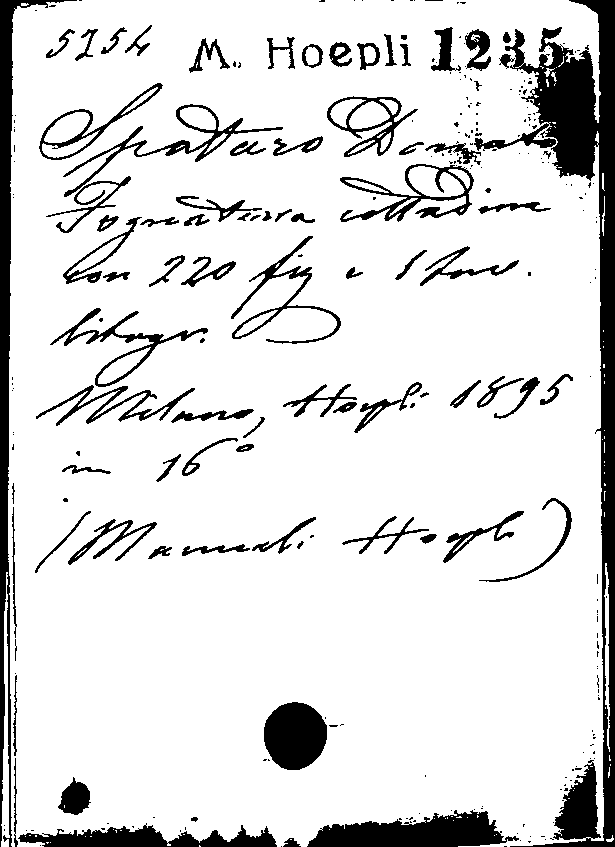 5254 M. Hoepli 1235
Spataro Donato
Fognatura cittadina
con 220 fig e 1 tav.
litogr.
Milano, Hoepli 1895
in 16°
(Manuali Hoepli)